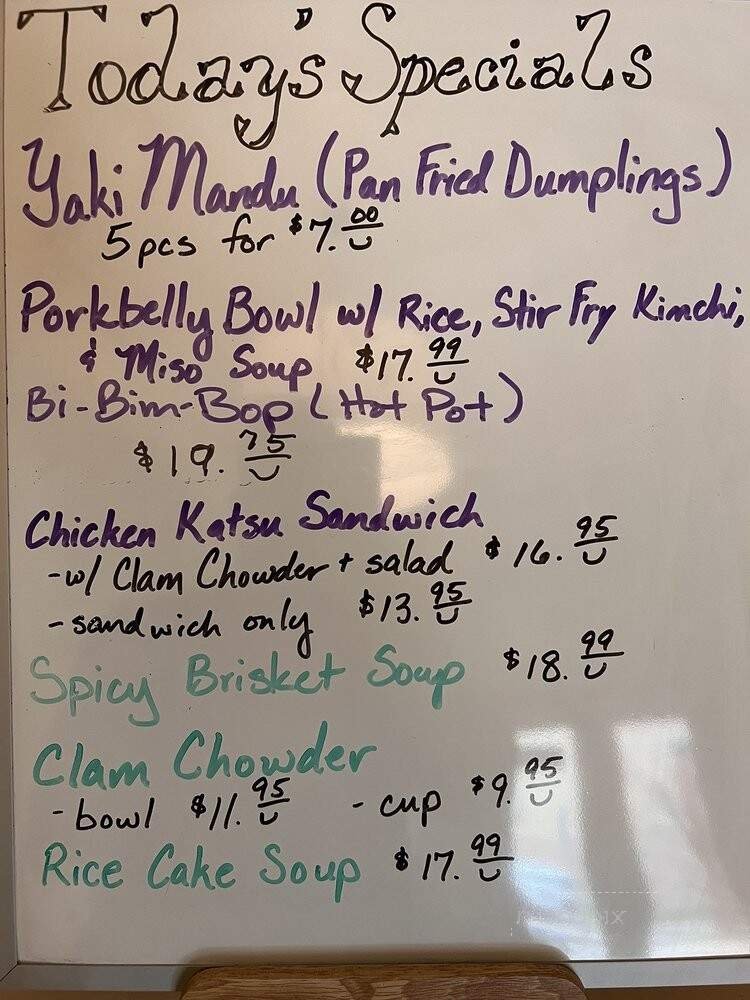 Today's Specials
Yaki Mandu (Pan Fried Dumplings)
5 pcs for $7.00
Porkbelly Bowl w/ Rice, Stir Fry Kimchi,
& Miso Soup $17.99
Bi-Bim-Bop (Hot Pot)
$19.75
Chicken Katsu Sandwich
-w/ Clam Chowder + salad $16.95
-sandwich only $13.95
Spicy Brisket Soup $18.99
Clam Chowder
-bowl $11.95 -cup $9.95
Rice Cake Soup $17.99